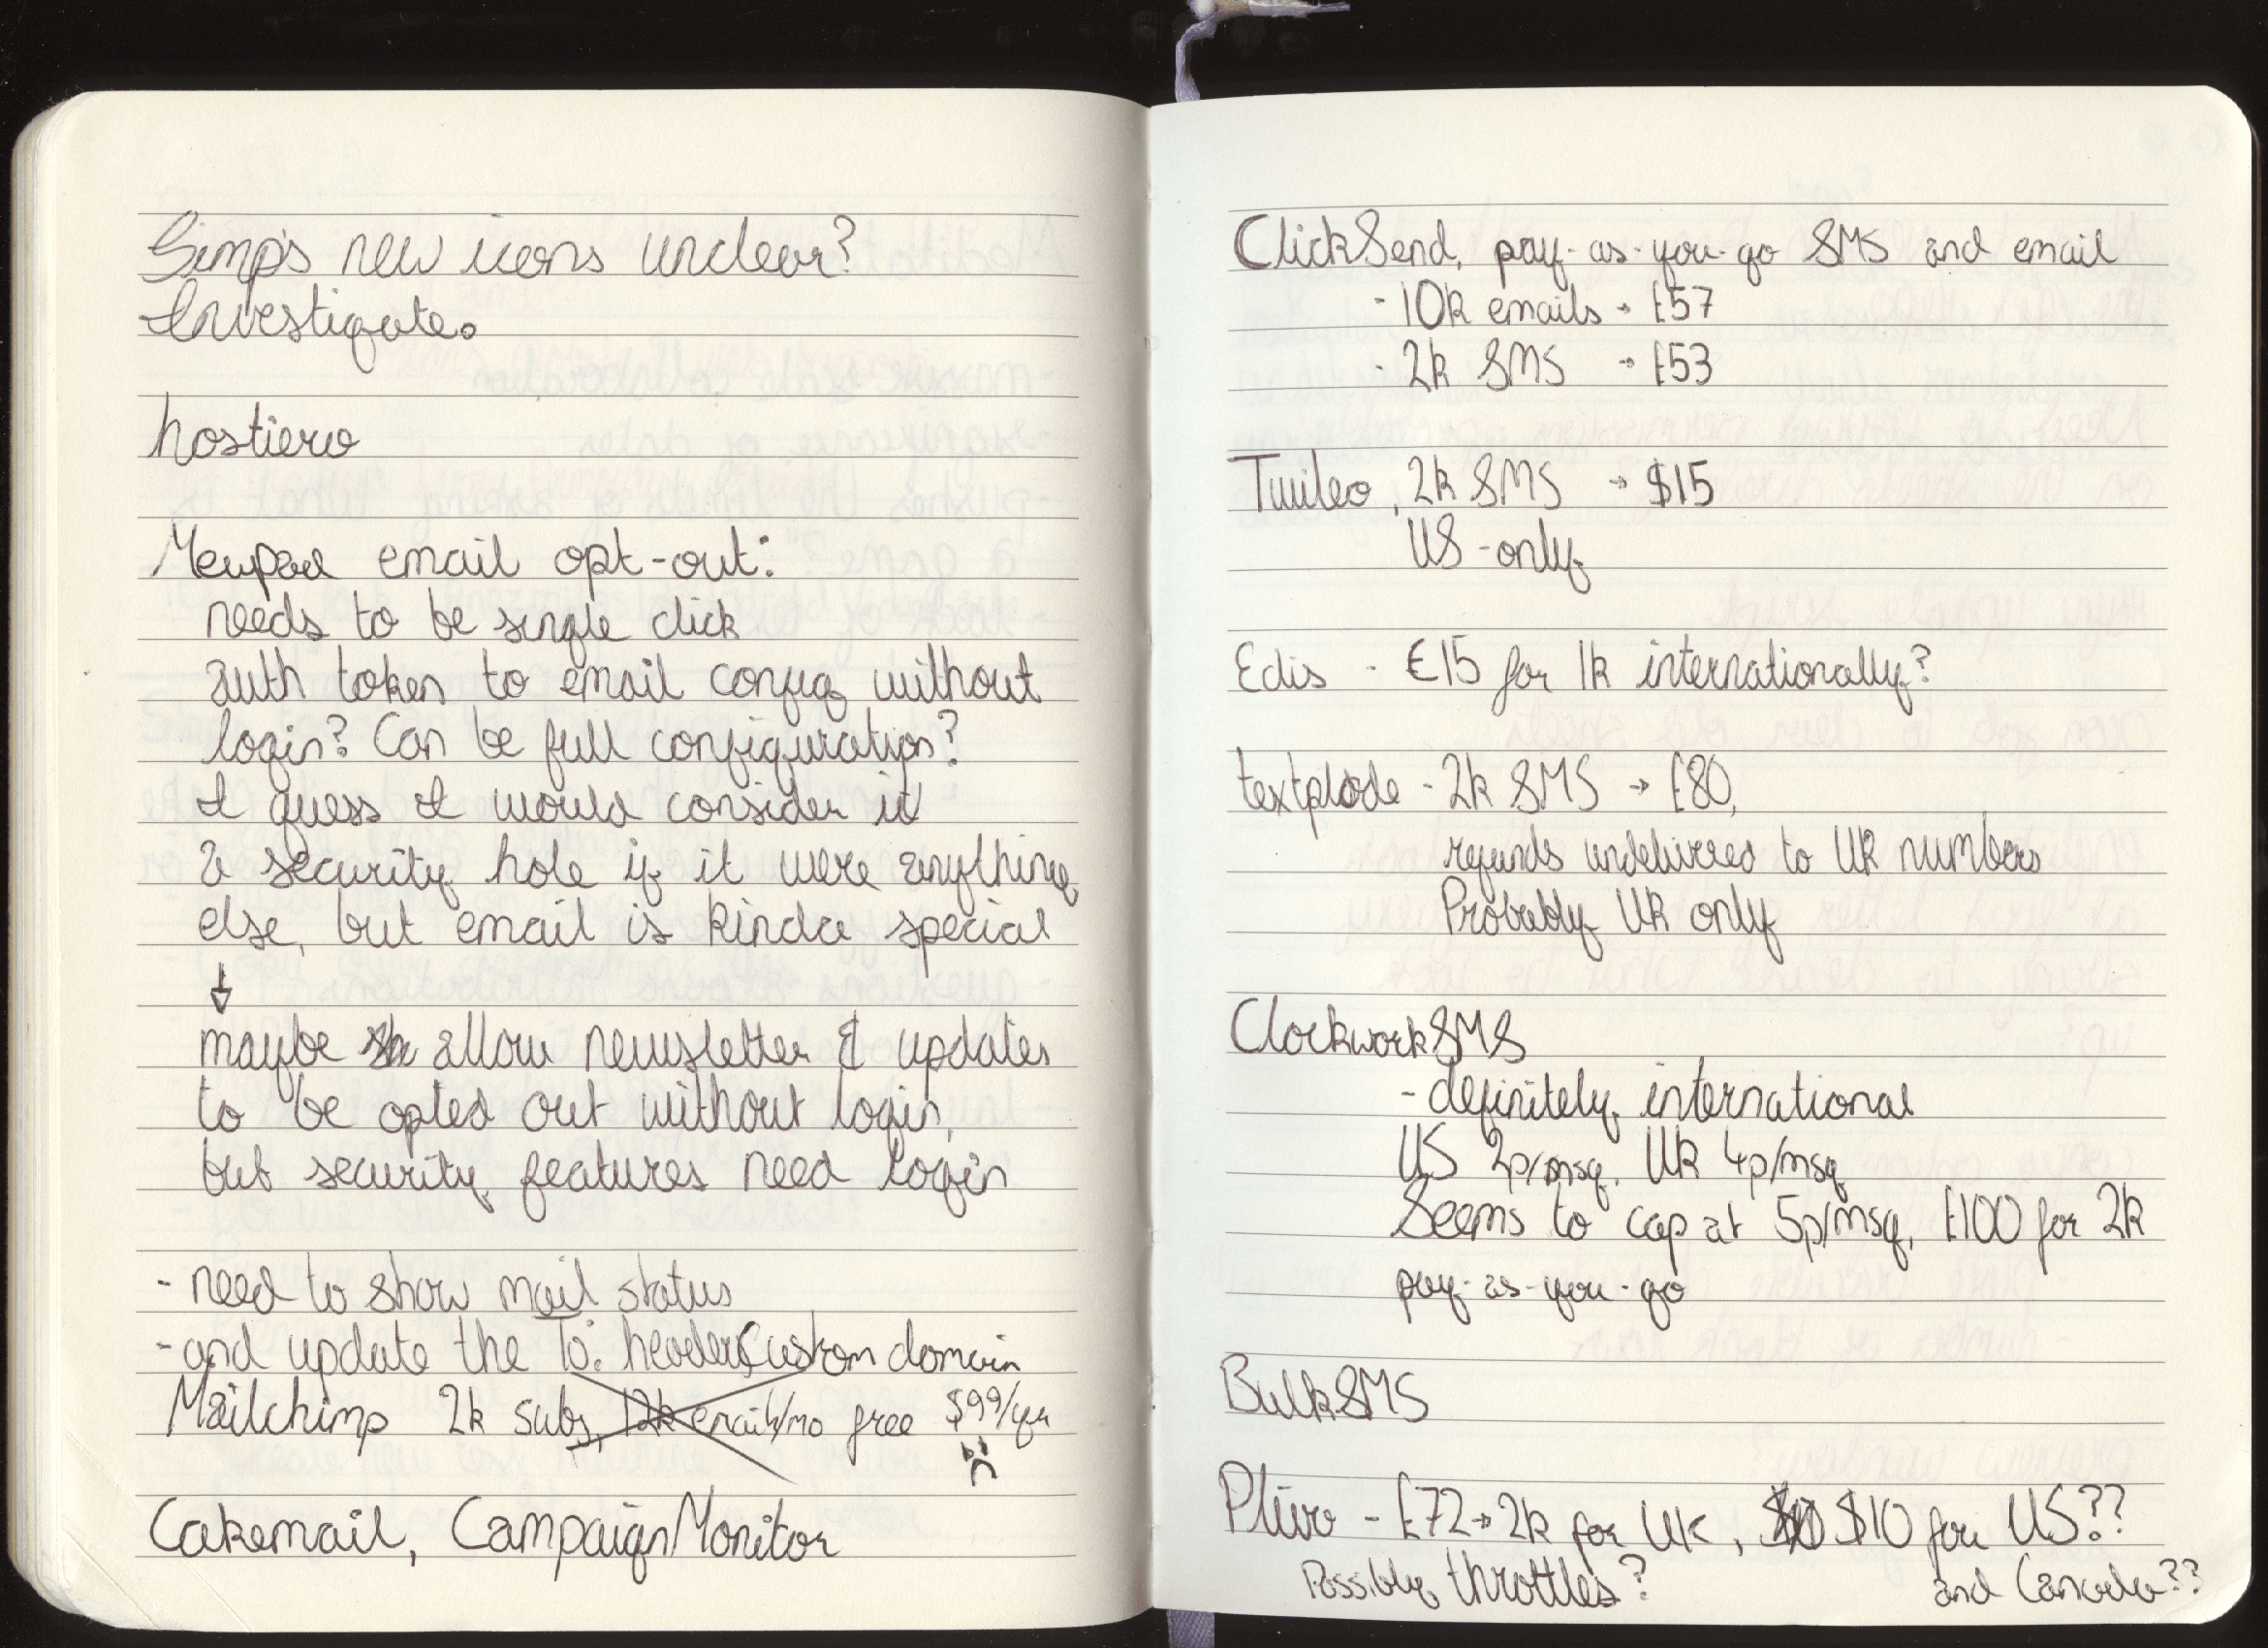 Gimp's new icons unclear?
Investigate.
hostiero
email opt-out:
needs to be single click
auth token to email config without
login? Can be full configuration?
I guess I would consider it
a security hole if it were anything
else, but email is kinda special
↓
maybe allow newsletter & updates
to be opted out without login,
but security features need login
- need to show mail status
- and update the To: header Custom domain
Mailchimp 2k subs, 12k emails/mo free $99/yr
Cakemail, CampaignMonitor
ClickSend, pay-as-you-go SMS and email
- 10k emails → £57
- 2k SMS → £53
Twileo, 2k SMS → $15
US-only
Edis - €15 for 1k internationally?
textplode - 2k SMS → £80,
refunds undelivered to UK numbers
Probably UK only
ClockworkSMS
- definitely international
US 2p/msg, UK 4p/msg
Seems to cap at 5p/msg, £100 for 2k
pay-as-you-go
BulkSMS
Plivo - £72 → 2k for UK, $10 $10 for US??
Possibly throttles? and Canada??